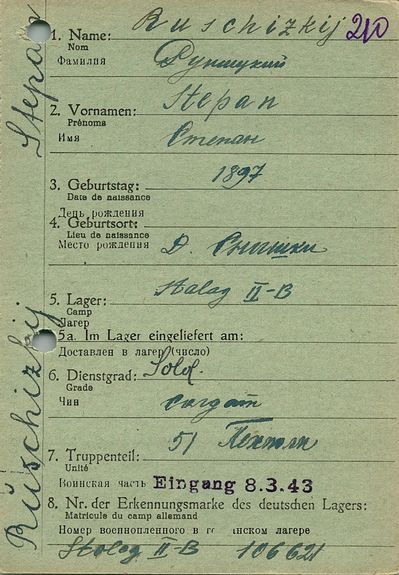 1. Name: Ruschizkij 210
Nom
Фамилия
2. Vornamen: Stepan
Prénoms
Имя Степан
3. Geburtstag: 1897
Date de naissance
День рождения
4. Geburtsort:
Lieu de naissance
Место рождения Д.
5. Lager: Stalag II-B
Camp
Лагер
5a. Im Lager eingeliefert am:
Доставлен в лагер (число)
6. Dienstgrad: Sold.
Grade
Чин солдат
7. Truppenteil: 51
Unité
Воинская часть Eingang 8.3.43
8. Nr. der Erkennungsmarke des deutschen Lagers:
Matricule du camp allemand
Номер военнопленного в лагере
Stalag II-B 106621
Ruschizkij Stepan